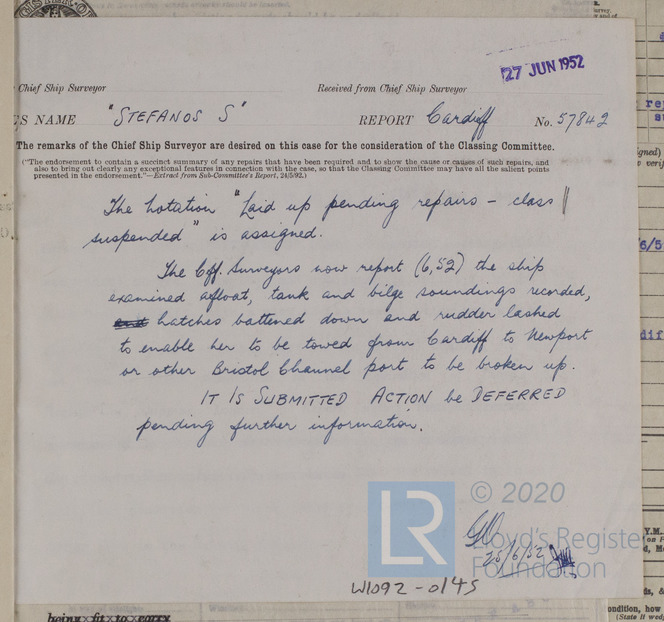 27 JUN 1952
Chief Ship Surveyor Received from Chief Ship Surveyor
S NAME "STEFANOS S" REPORT Cardiff No. 57842
The remarks of the Chief Ship Surveyor are desired on this case for the consideration of the Classing Committee.
("The endorsement to contain a succinct summary of any repairs that have been required and to show the cause or causes of such repairs, and
also to bring out clearly any exceptional features in connection with the case, so that the Classing Committee may have all the salient points
presented in the endorsement."—Extract from Sub-Committee's Report, 24/5/92.)
The notation "Laid up pending repairs – class
suspended" is assigned.
The Cff. Surveyors now report (6,52) the ship
examined afloat, tank and bilge soundings recorded,
and hatches battened down and rudder lashed
to enable her to be towed from Cardiff to Newport
or other Bristol Channel port to be broken up.
IT IS SUBMITTED ACTION be DEFERRED
pending further information.
© 2020
LR
Lloyd's Register
Foundation
25/6/52
W1092-0145
being fit to carry